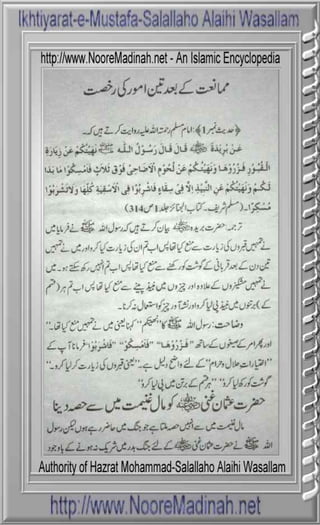 Ikhtiyarat-e-Mustafa-Salallaho Alaihi Wasallam
http://www.NooreMadinah.net - An Islamic Encyclopedia
ممانعت کے بعد تین امور کی رخصت
﴿حدیث نمبر1﴾: امام مسلم رحمۃ اللہ علیہ روایت کرتے ہیں کہ۔
عَنْ بُرَيْدَةَ ﷺ قَالَ قَالَ رَسُوْلُ اللّٰهِ ﷺ نَهَيْتُكُمْ عَنْ زِيَارَةِ
الْقُبُوْرِ فَزُوْرُوْهَا وَنَهَيْتُكُمْ عَنْ لُحُوْمِ الْاَضَاحِىْ فَوْقَ ثَلَاثٍ فَامْسِكُوْا مَا بَدَا
لَكُمْ وَنَهَيْتُكُمْ عَنِ النَّبِيْذِ اِلَّا فِىْ سِقَاءٍ فَاشْرَبُوْا فِى الْاَسْقِيَةِ كُلِّهَا وَلَا تَشْرَبُوْا
مُسْكِرًا۔ (مسلم شریف، کتاب الجنائز جلد 1 ص 314)
ترجمہ: حضرت بریدہ بیان کرتے ہیں کہ رسول اللہ ﷺ نے فرمایا میں
نے تمہیں قبروں کی زیارت سے منع کیا تھا پس اب تم ان کی زیارت کیا کرو اور میں نے تمہیں
تین دن کے بعد قربانی کے گوشت کو رکھنے سے منع کیا تھا پس اب تم انہیں رکھ سکتے ہو۔ میں
نے تمہیں مشکیزوں کے علاوہ اور چیزوں میں نبیذ پینے سے منع کیا تھا پس اب تم ہر (قسم
کے) برتنوں میں نبیذ پی لیا کرو اور نشہ آور چیز کو استعمال نہ کرنا۔
وضاحت: رسول اللہ ﷺ کا "نهيتكم" کہنا یعنی میں نے تمہیں منع کیا تھا۔"
اور پھر امر کے صیغوں کے ساتھ "فَزُوْرُوْهَا" "فَامْسِكُوْا" "فَاشْرَبُوْا" فرمانا آپ کے
"اختیارات حلال و حرام" کے لئے واضح دلیل ہے۔ "یعنی قبروں کی زیارت کر لیا کرو۔"
گوشت کو رکھ لیا کرو" "ہر قسم کے برتن میں پی لیا کرو"
حضرت عثمان غنی کو مال غنیمت میں سے حصہ دینا
مال غنیمت میں سے انہیں حصہ ملتا ہے جو جنگ میں حاضر رہے ہوں لیکن رسول
اللہ ﷺ نے حضرت عثمان غنی کے لئے جنگ بدر میں شریک نہ ہونے کے باوجود
Authority of Hazrat Mohammad-Salallaho Alaihi Wasallam
http://www.NooreMadinah.net